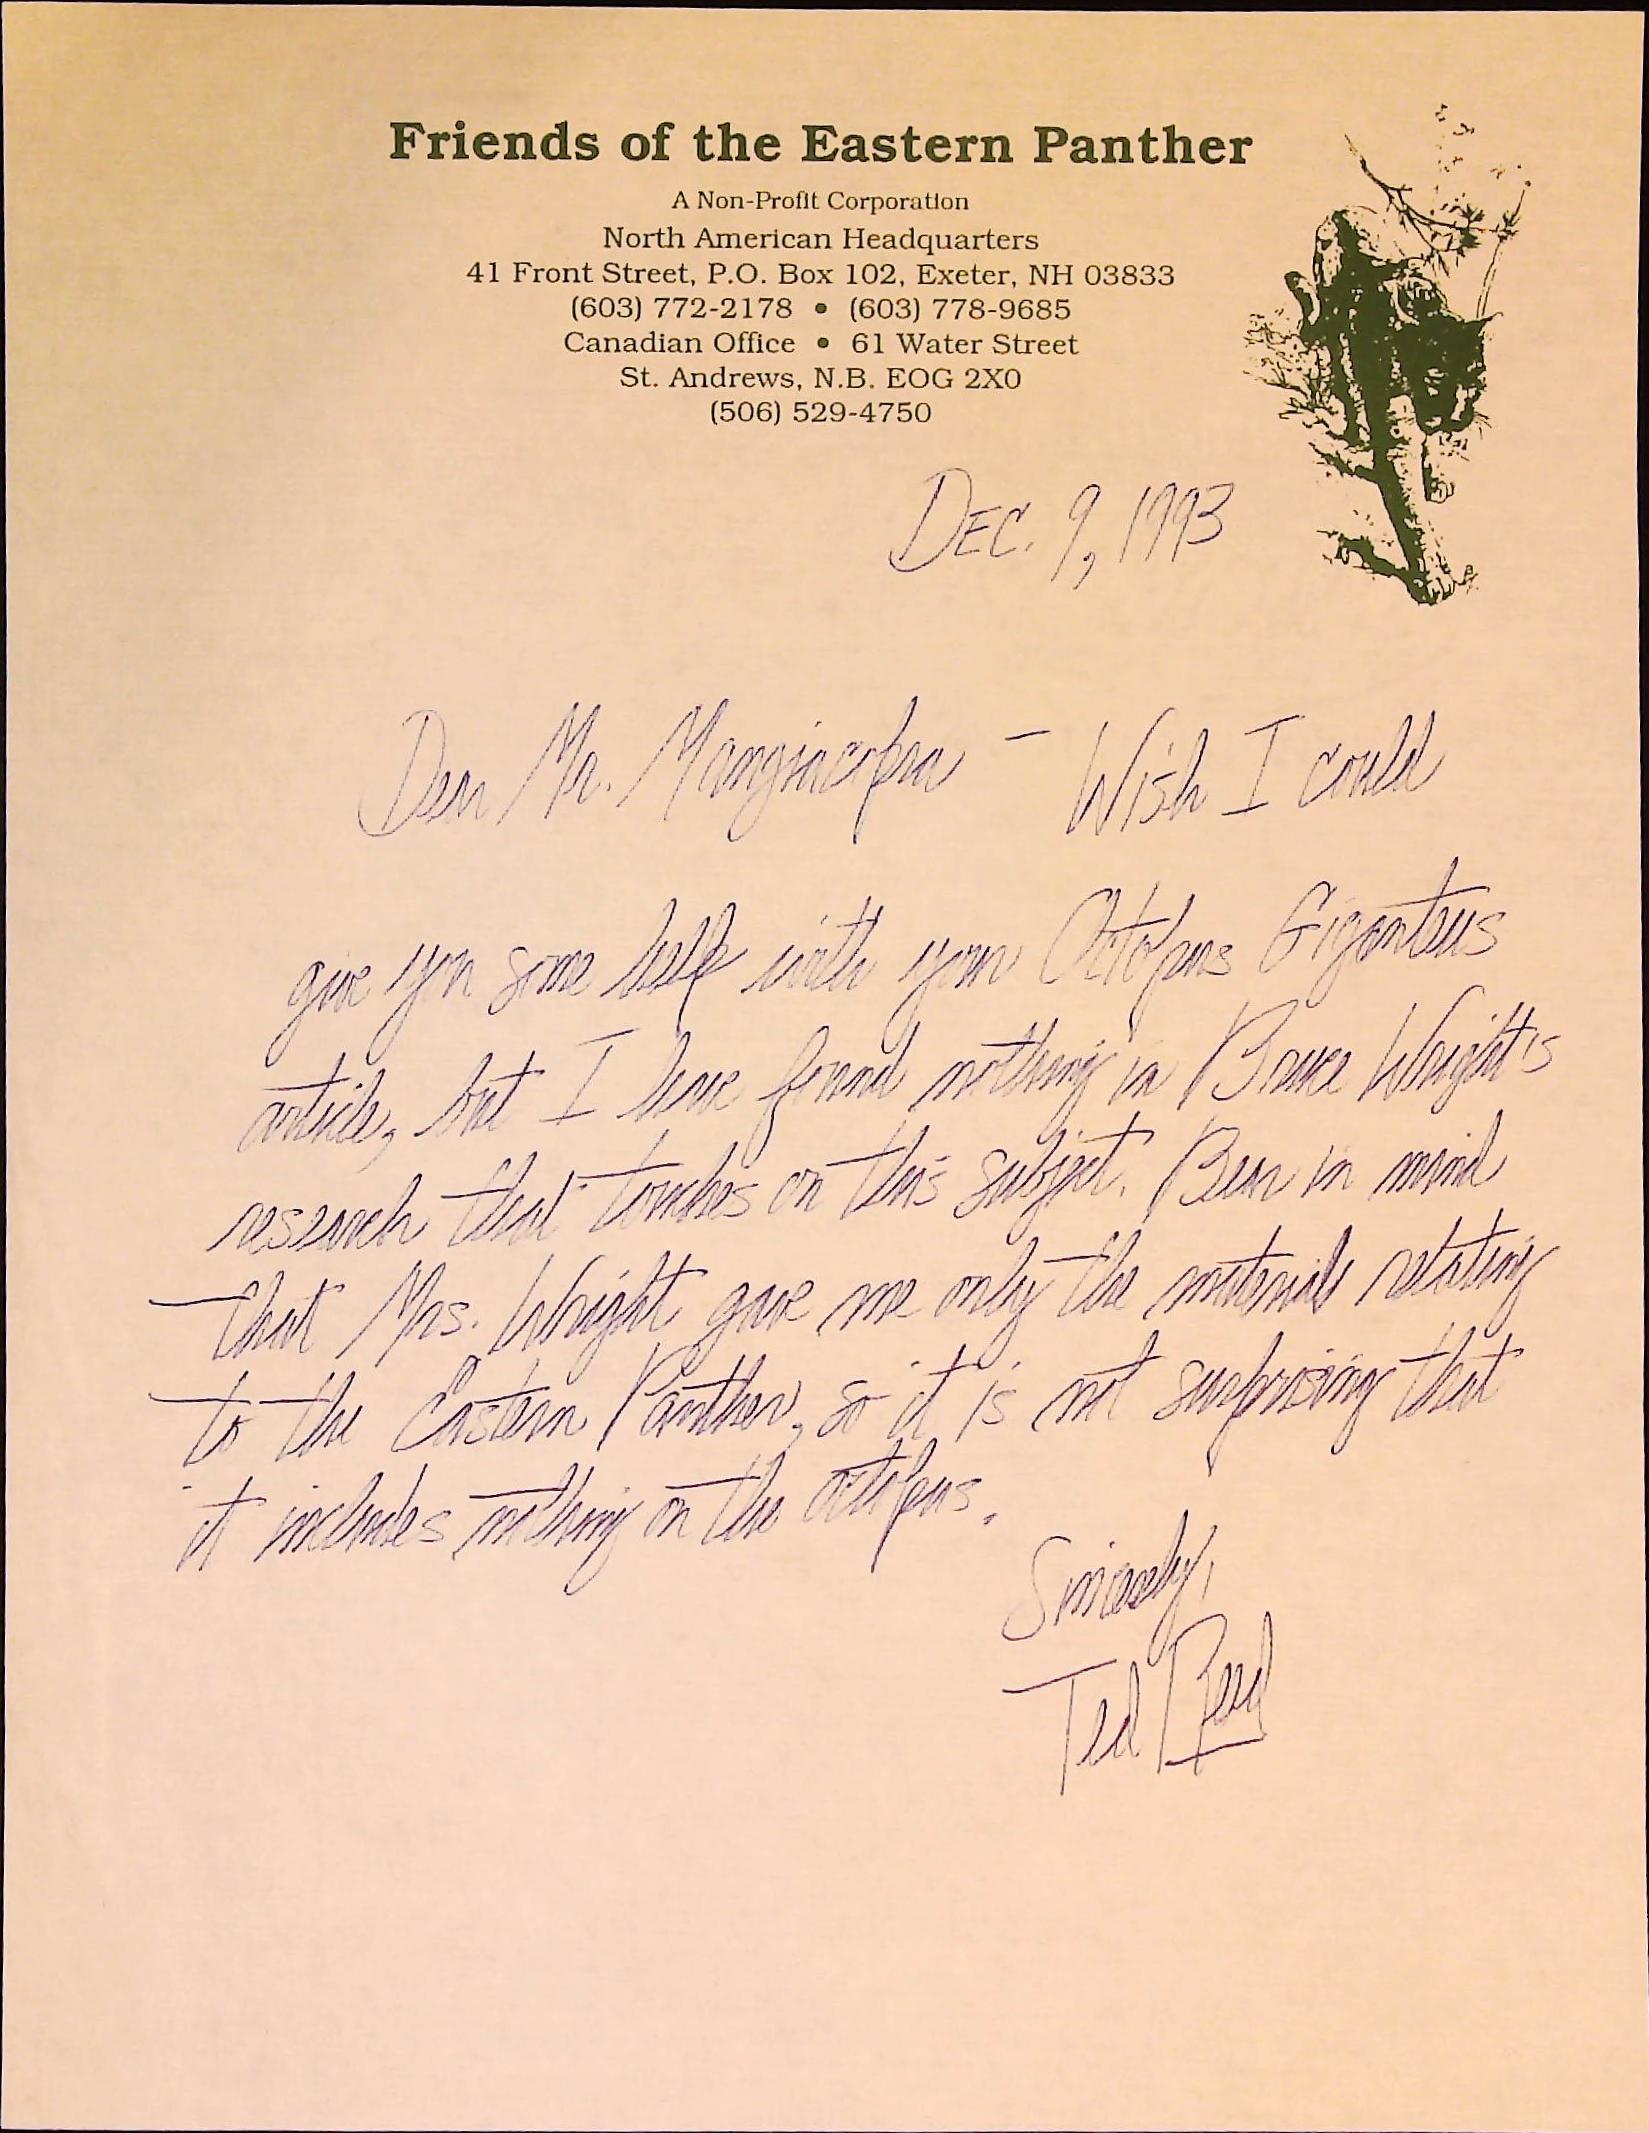 Friends of the Eastern Panther
A Non-Profit Corporation
North American Headquarters
41 Front Street, P.O. Box 102, Exeter, NH 03833
(603) 772-2178 • (603) 778-9685
Canadian Office • 61 Water Street
St. Andrews, N.B. EOG 2X0
(506) 529-4750
DEC. 9, 1993
Dear Mr. Mangiacopra — Wish I could
give you some help with your Octopus Giganteus
article, but I have found nothing in Bruce Wright's
research that touches on this subject. Bear in mind
that Mrs. Wright gave me only the materials relating
to the Eastern Panther, so it is not surprising that
it includes nothing on the octopus.
Sincerely,
Ted